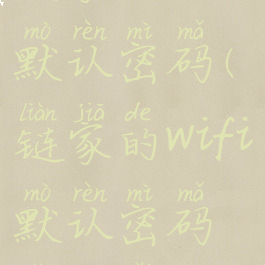 mò rèn mì mǎ
默认密码(
liàn jiā de
链家的wifi
mò rèn mì mǎ
默认密码